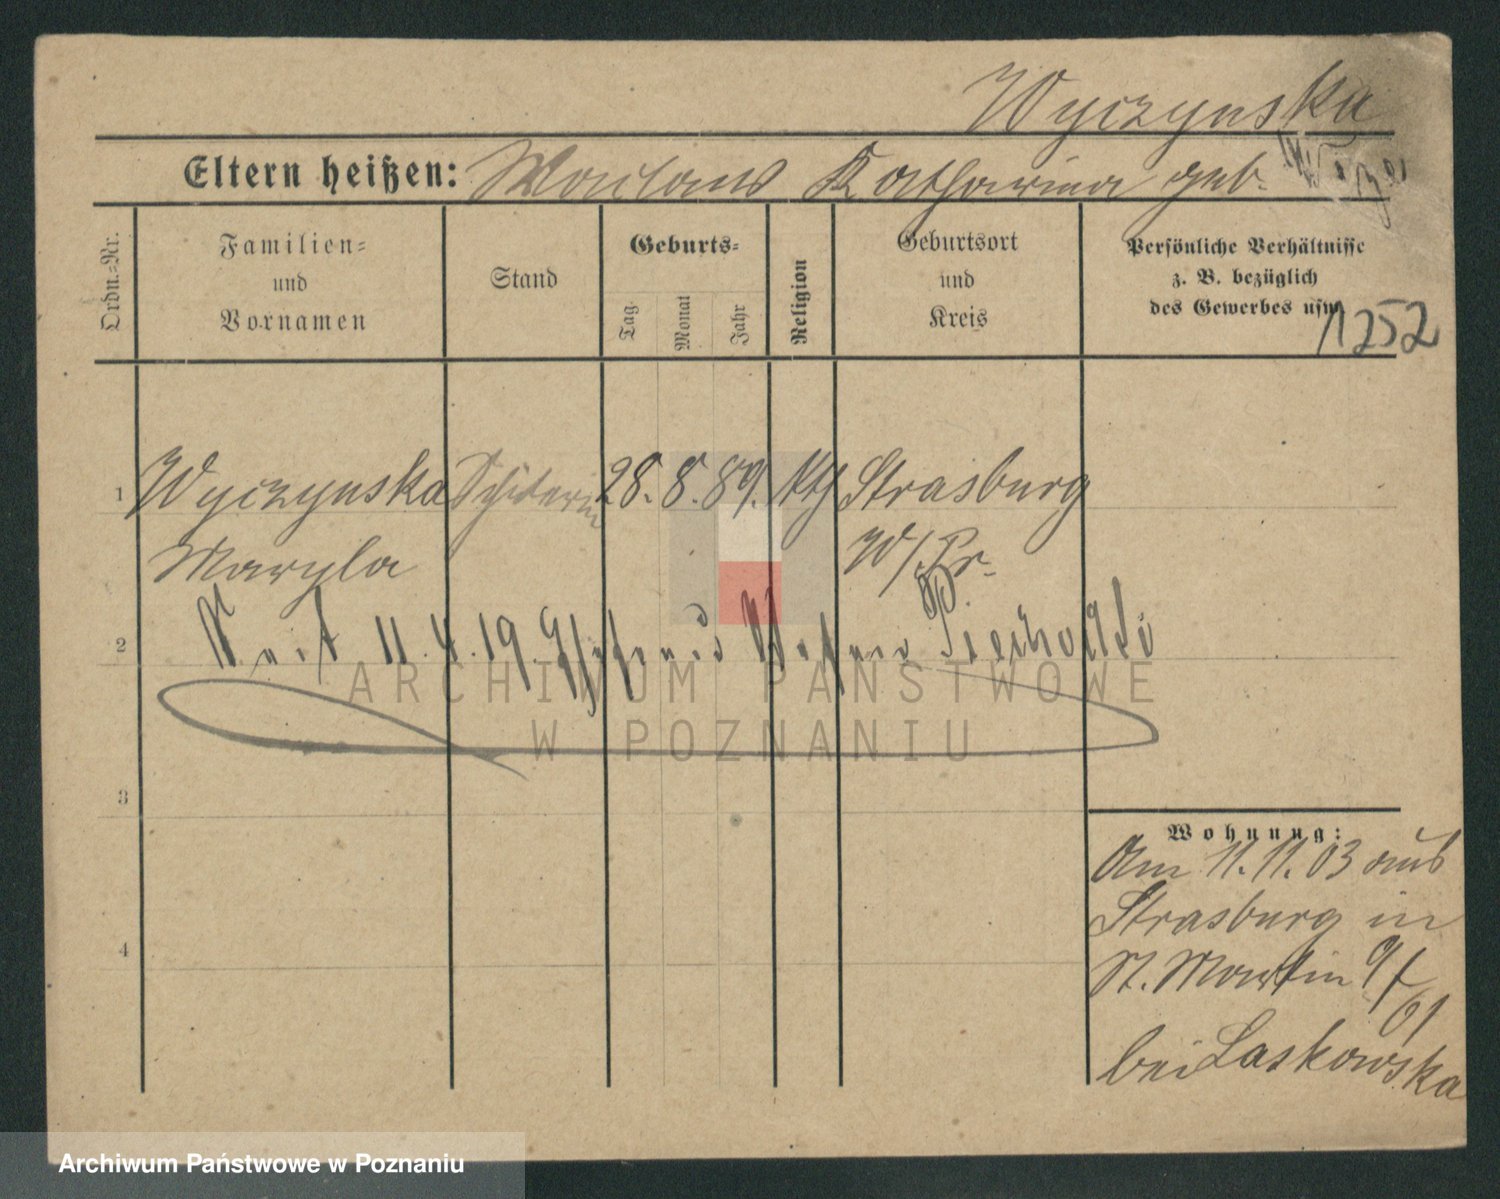 Wyczynska
Eltern heißen: Katharina geb.
Ordn.-Nr.
Familien-
und
Vornamen
Stand
Geburts-
Tag
Monat
Jahr
Religion
Geburtsort
und
Kreis
Persönliche Verhältnisse
z. B. bezüglich
des Gewerbes usw.
1252
1 Wyczynska 28. 8. 89. kth Strasburg
Maryla W/Pr.
2 11.4.19.
3
4
ARCHIWUM PAŃSTWOWE
W POZNANIU
Wohnung:
Am 11.11.03 aus
Strasburg in
St. Martin
61
bei Laskowska
Archiwum Państwowe w Poznaniu